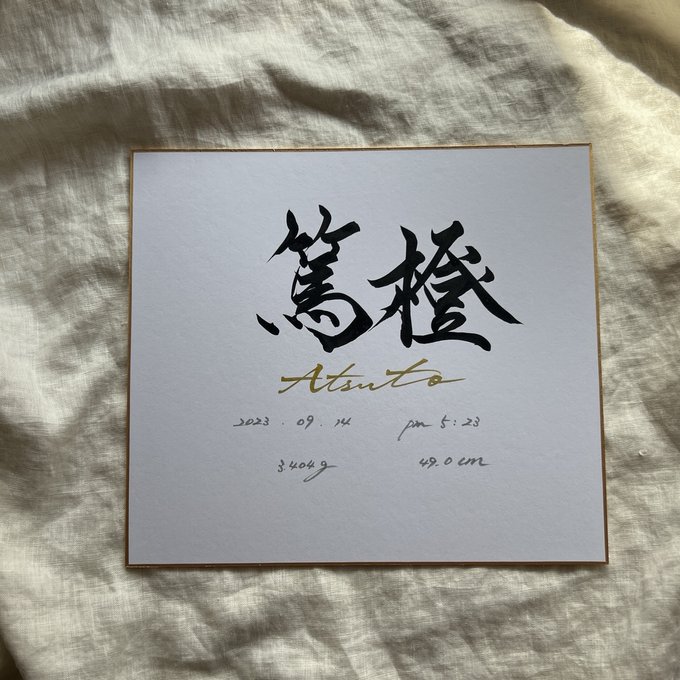 篤橙
Atsuto
2023.09.14 pm 5:23
3.404g 49.0cm